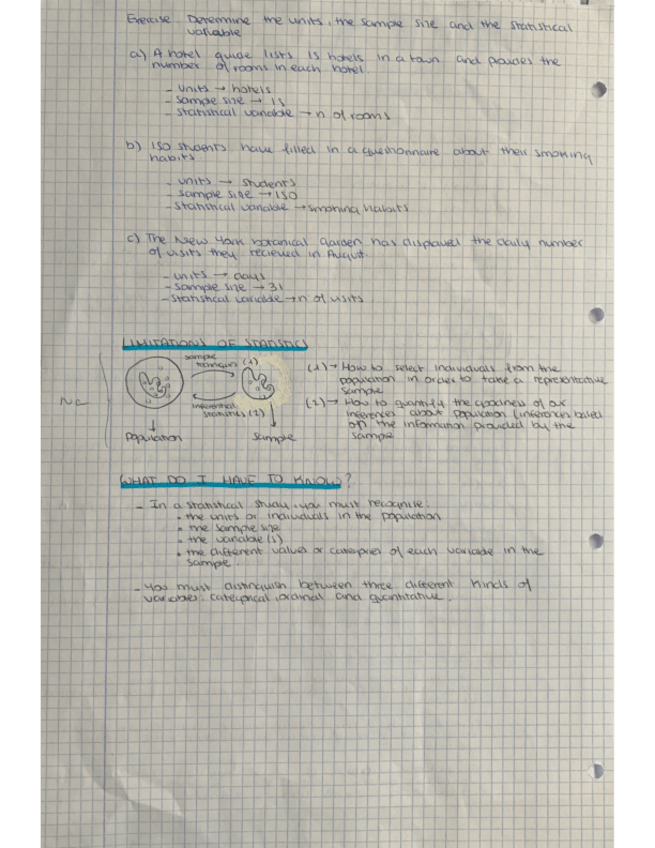 Exercise Determine the units, the sample size and the statistical
variable
a) A hotel guide lists 15 hotels in a town and provides the
number of rooms in each hotel.
- units → hotels
- sample size → 15
- statistical variable → nº of rooms
b) 150 students have filled in a questionnaire about their smoking
habits.
- units → students
- sample size → 150
- statistical variable → smoking habits
c) The New York botanical garden has displayed the daily number
of visits they recieved in August.
- units → days
- sample size → 31
- statistical variable → nº of visits
LIMITATIONS OF STATISTICS
sample (1)
inferential
statistics (2)
Population
Sample
(1) → How to select individuals from the
population in order to take a representative
sample
(2) → How to quantify the goodness of our
inferences about population (inferences based
on the information provided by the
sample
WHAT DO I HAVE TO KNOW?
- In a statistical study, you must recognise:
• the units or individuals in the population
• the sample size
• the variable(s)
• the different values or categories of each variable in the
sample.
- You must distinguish between three different kinds of
variables: categorical, ordinal and quantitative.